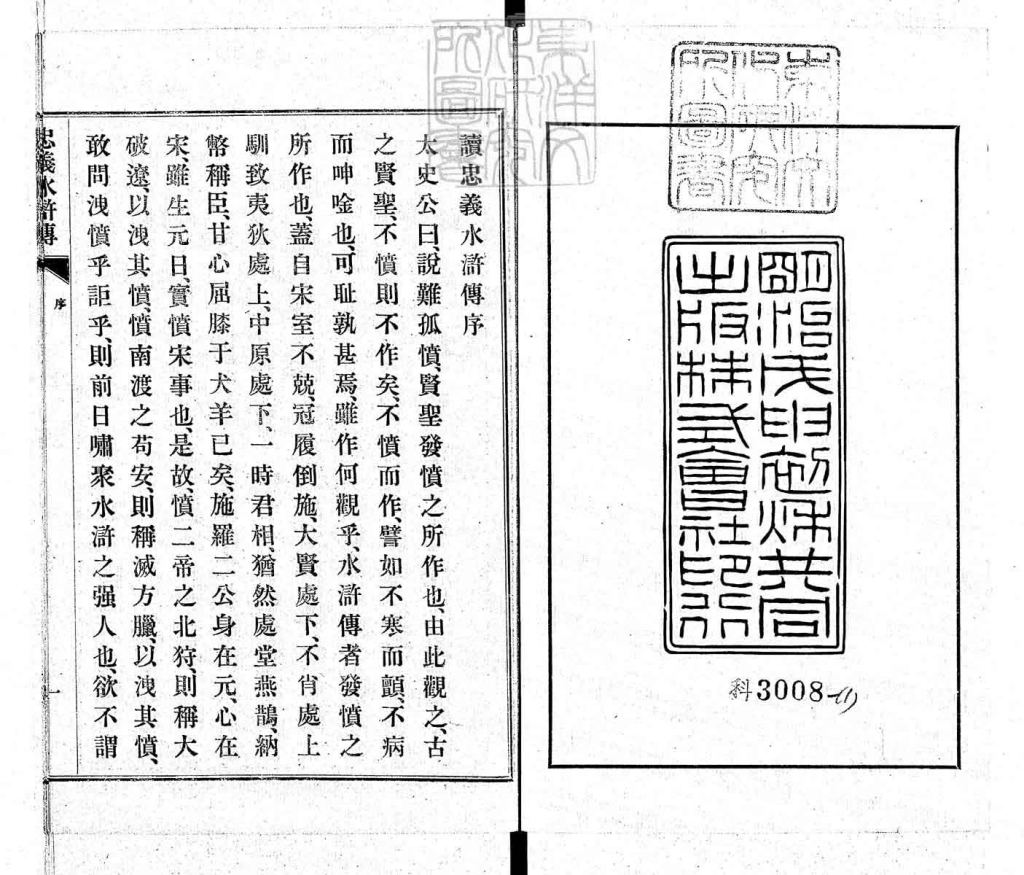 東洋文
化研究
所圖書
明治戊申初秋共同
出版株式會社印行
科3008-(1)
東洋文
化研究
所圖書
讀忠義水滸傳序
太史公曰、說難孤憤、賢聖發憤之所作也、由此觀之、古
之賢聖、不憤則不作矣、不憤而作、譬如不寒而顫、不病
而呻唫也、可耻孰甚焉、雖作何觀乎、水滸傳者發憤之
所作也、蓋自宋室不兢、冠履倒施、大賢處下、不肖處上
馴致夷狄處上、中原處下、一時君相、猶然處堂燕鵲、納
幣稱臣、甘心屈膝于犬羊已矣、施羅二公身在元、心在
宋、雖生元日、實憤宋事也、是故、憤二帝之北狩、則稱大
破遼、以洩其憤、憤南渡之苟安、則稱滅方臘、以洩其憤、
敢問洩憤乎詎乎、則前日嘯聚水滸之强人也、欲不謂
忠義水滸傳
序
一